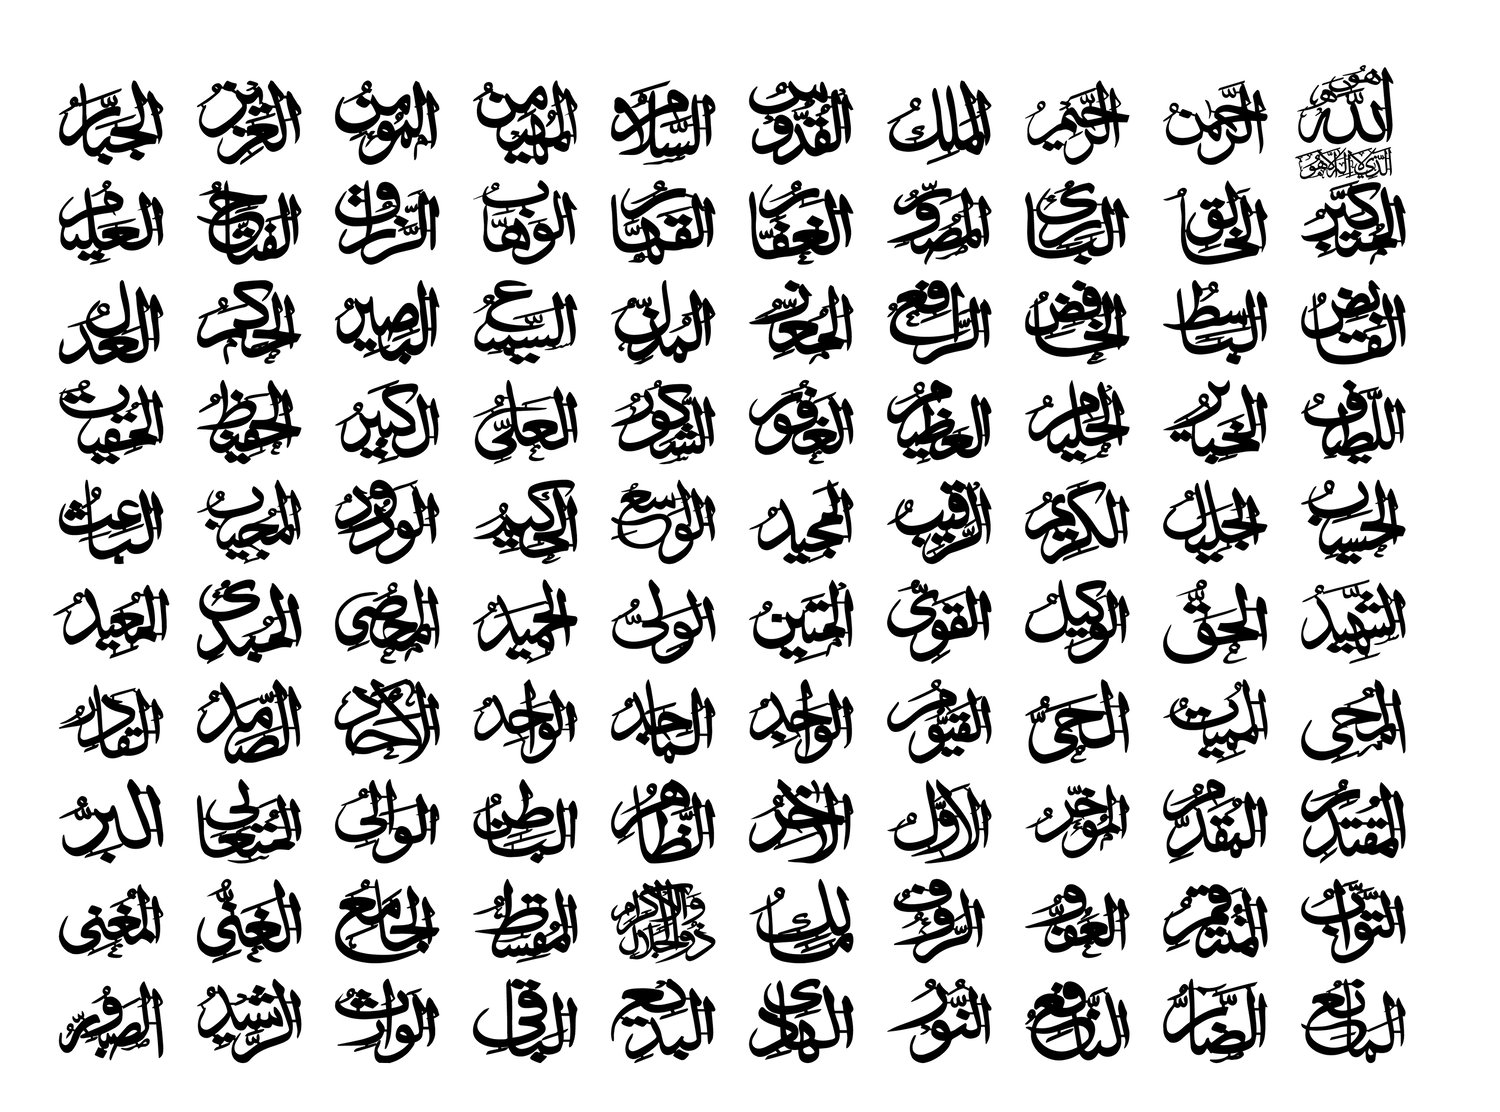 هو الله الذي لا إله إلا هو الرحمن الرحيم الملك القدوس السلام المهيمن المؤمن العزيز الجبار
المتكبر الخالق البارئ المصور الغفار القهار الوهاب الرزاق الفتاح العليم
القابض الباسط الخافض الرافع المعز المذل السميع البصير الحكم العدل
اللطيف الخبير الحليم العظيم الغفور الشكور العلي الكبير الحفيظ المقيت
الحسيب الجليل الكريم الرقيب المجيد الواسع الحكيم الودود المجيب الباعث
الشهيد الحق الوكيل القوي المتين الولي الحميد المحصي المبدئ المعيد
المحيي المميت الحي القيوم الواجد الماجد الواحد الأحد الصمد القادر
المقتدر المقدم المؤخر الأول الآخر الظاهر الباطن الوالي المتعالي البر
التواب المنتقم العفو الرؤف مالك ذو الجلال والإكرام المقسط الجامع الغني المغني
المانع الضار النافع النور الهادي البديع الباقي الوارث الرشيد الصبور